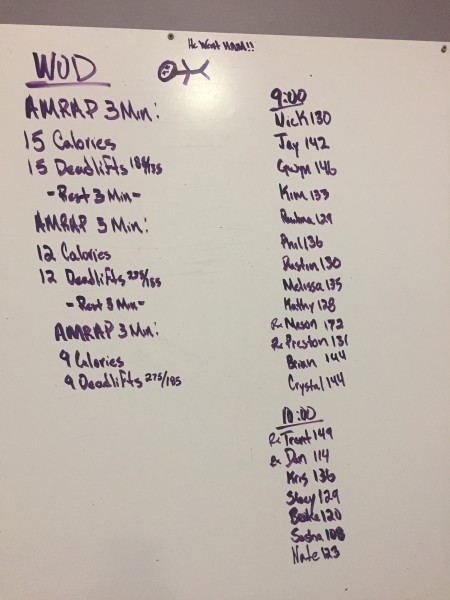 He Went HAM!!
WOD
AMRAP 3 Min:
15 Calories
15 Deadlifts
-Rest 3 Min-
AMRAP 3 Min:
12 Calories
12 Deadlifts
-Rest 3 Min-
AMRAP 3 Min:
9 Calories
9 Deadlifts 275/185
9:00
Nick 130
Jay 142
Gwyn 146
Kim 133
129
Phil 136
Dustin 130
Melissa 135
Kathy 128
Rx Mason 172
Rx Preston 131
Brian 144
Crystal 144
10:00
Rx Trent 149
Rx Dan 114
Kris 136
Stacy 129
Brooke 120
Sasha 108
Nate 123